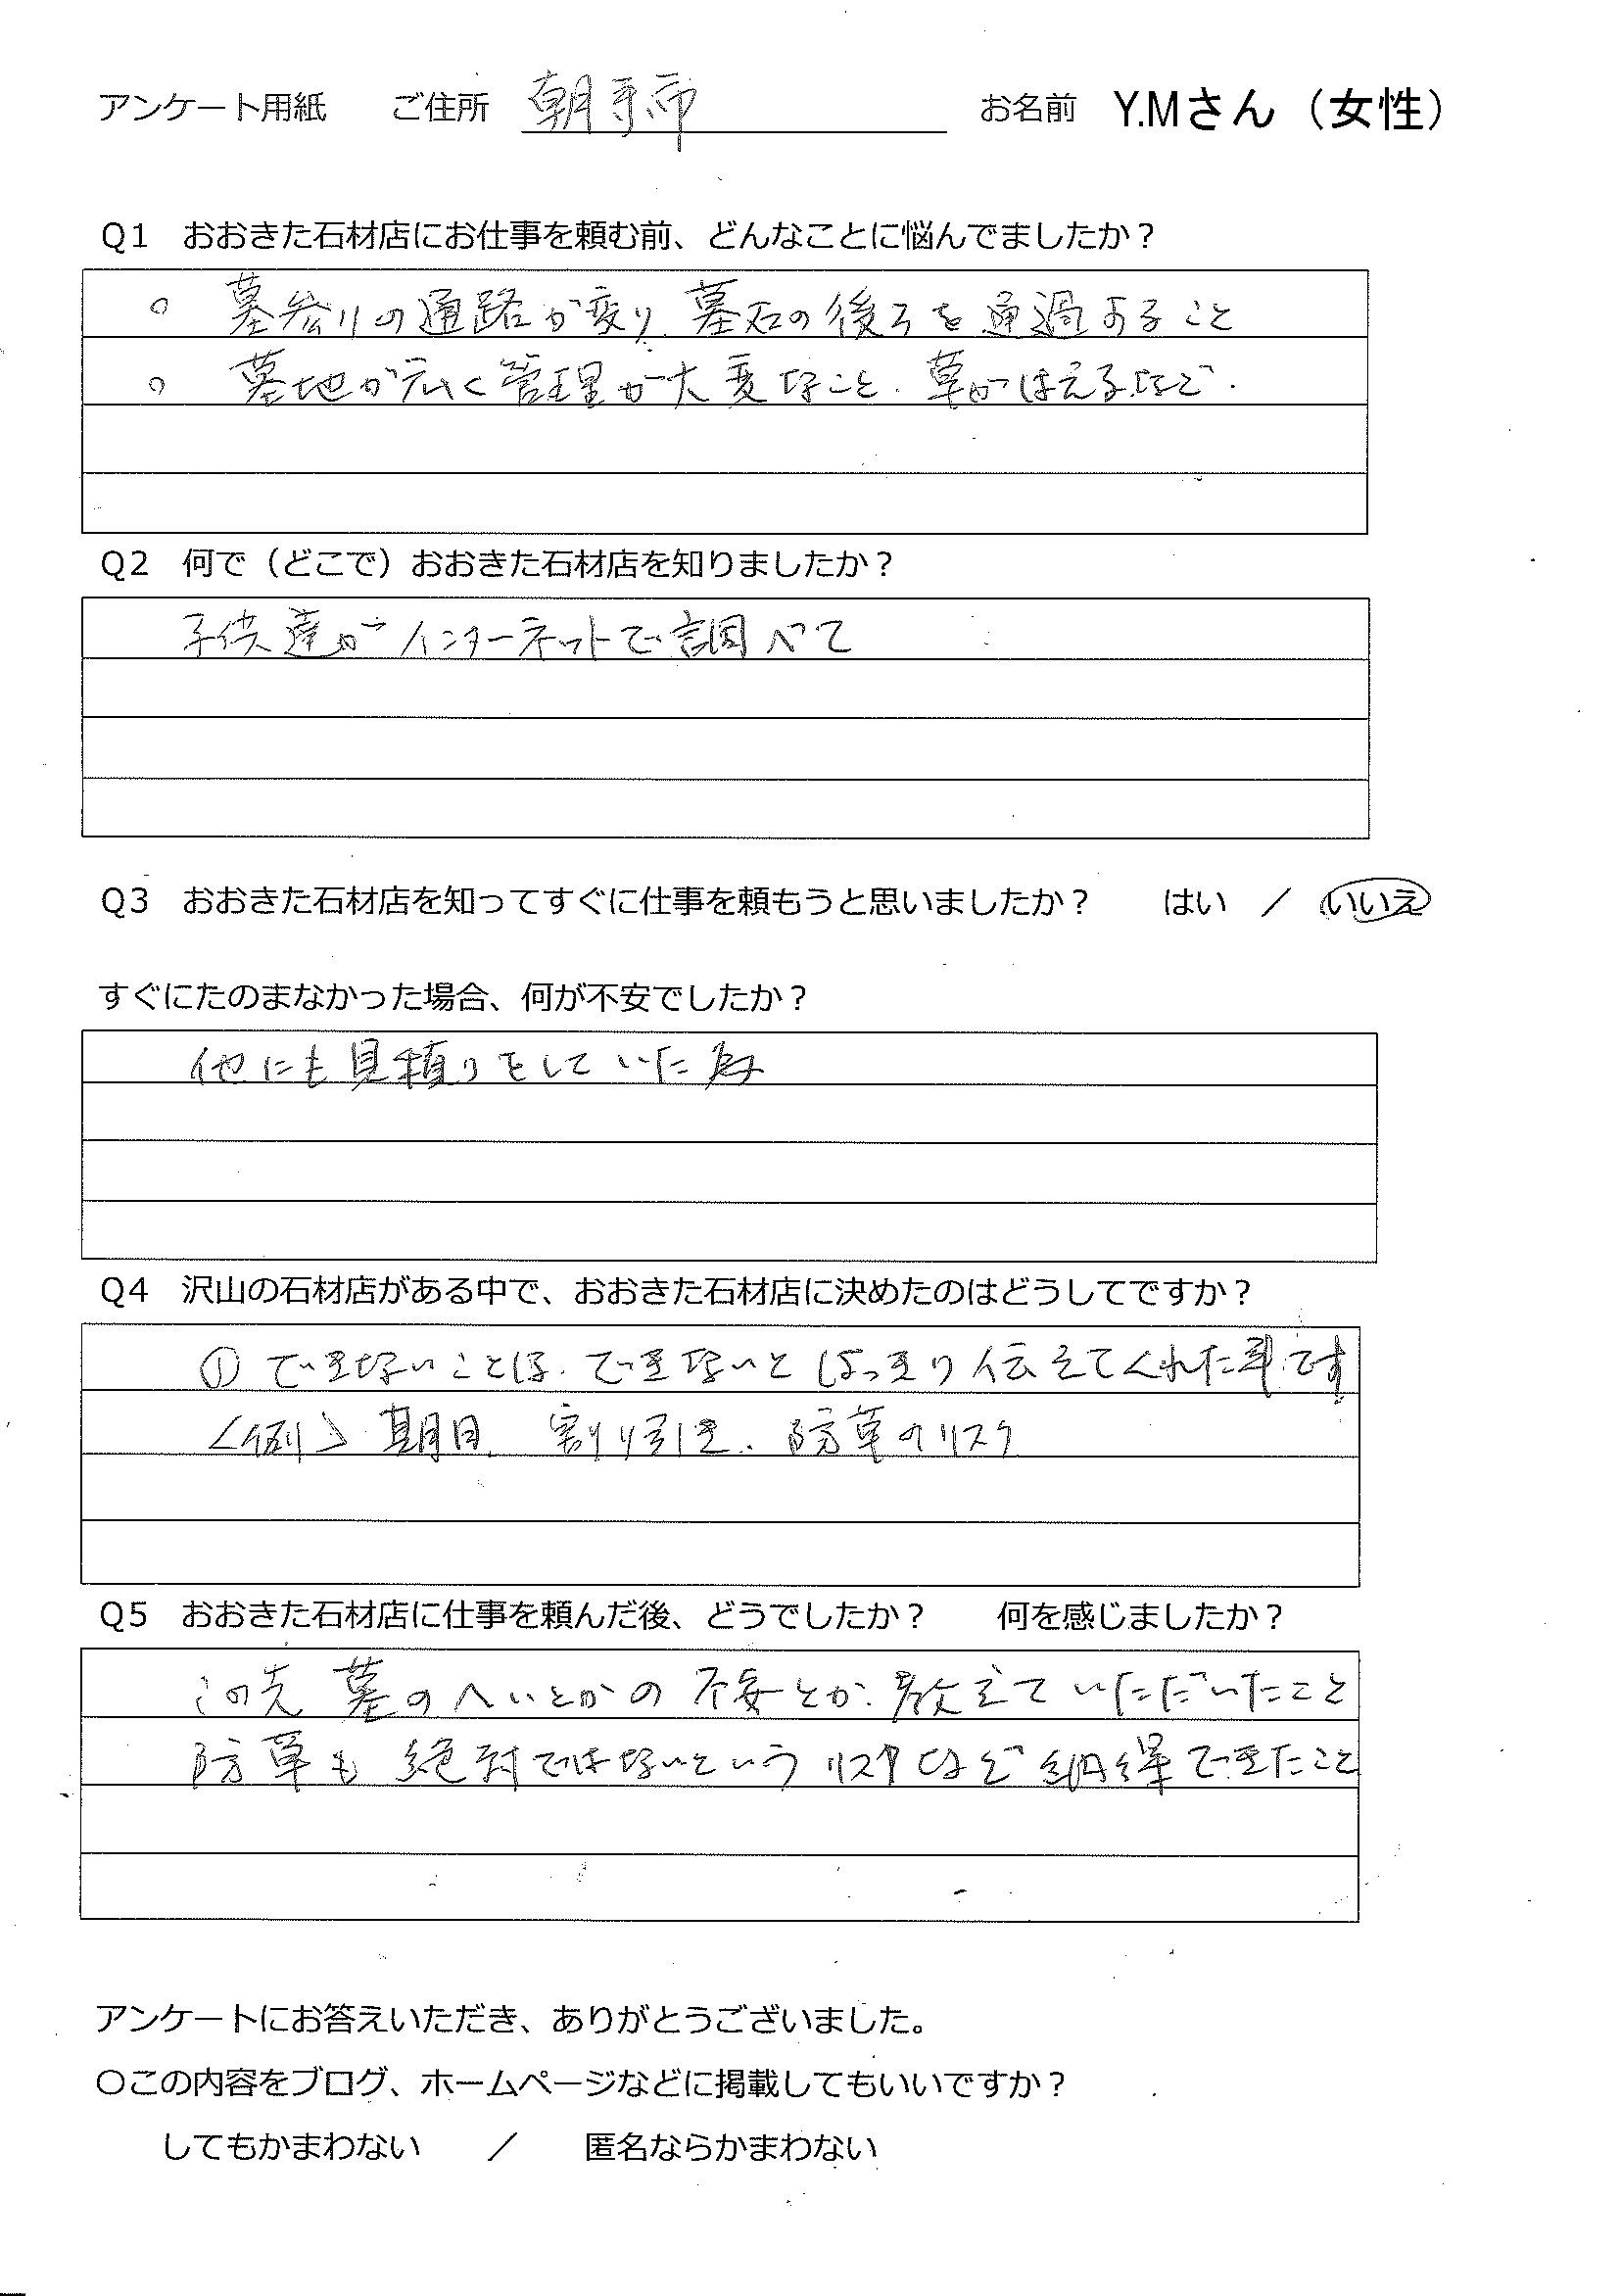 アンケート用紙　ご住所　朝来市　お名前　Y.Mさん（女性）
Q1　おおきた石材店にお仕事を頼む前、どんなことに悩んでましたか？
○　墓参りの通路が変り 墓石の後ろを通過すること
○　墓地が広く管理が大変なこと、草がはえるなど.
Q2　何で（どこで）おおきた石材店を知りましたか？
子供達がインターネットで調べて
Q3　おおきた石材店を知ってすぐに仕事を頼もうと思いましたか？　はい　／　いいえ
すぐにたのまなかった場合、何が不安でしたか？
他にも見積りをしていた為
Q4　沢山の石材店がある中で、おおきた石材店に決めたのはどうしてですか？
① できないことは、できないと はっきり伝えてくれた事です
＜例＞ 期日、割り引き、防草のリスク
Q5　おおきた石材店に仕事を頼んだ後、どうでしたか？　何を感じましたか？
この先 墓のへいとかの 不安とか、教えていただいたこと
防草も 絶対ではないという リスクなど 納得できたこと
アンケートにお答えいただき、ありがとうございました。
○この内容をブログ、ホームページなどに掲載してもいいですか？
してもかまわない　／　匿名ならかまわない